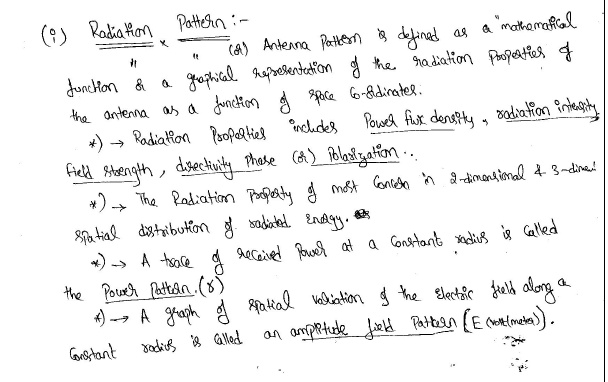 (i) Radiation Pattern :-
" " (or) Antenna Pattern is defined as a "mathematical
function or a graphical representation of the radiation properties of
the antenna as a function of space Co-ordinates.
*) → Radiation Properties includes Power flux density, radiation intensity
field strength, directivity Phase (or) Polarization..
*) → The Radiation Property of most Concern is 2-dimensional & 3-dimen
spatial distribution of radiated Energy.
*) → A trace of received Power at a Constant radius is Called
the Power Pattern. (r)
*) → A graph of spatial variation of the Electric field along a
Constant radius is Called an amplitude field Pattern (E (volt/meter)).